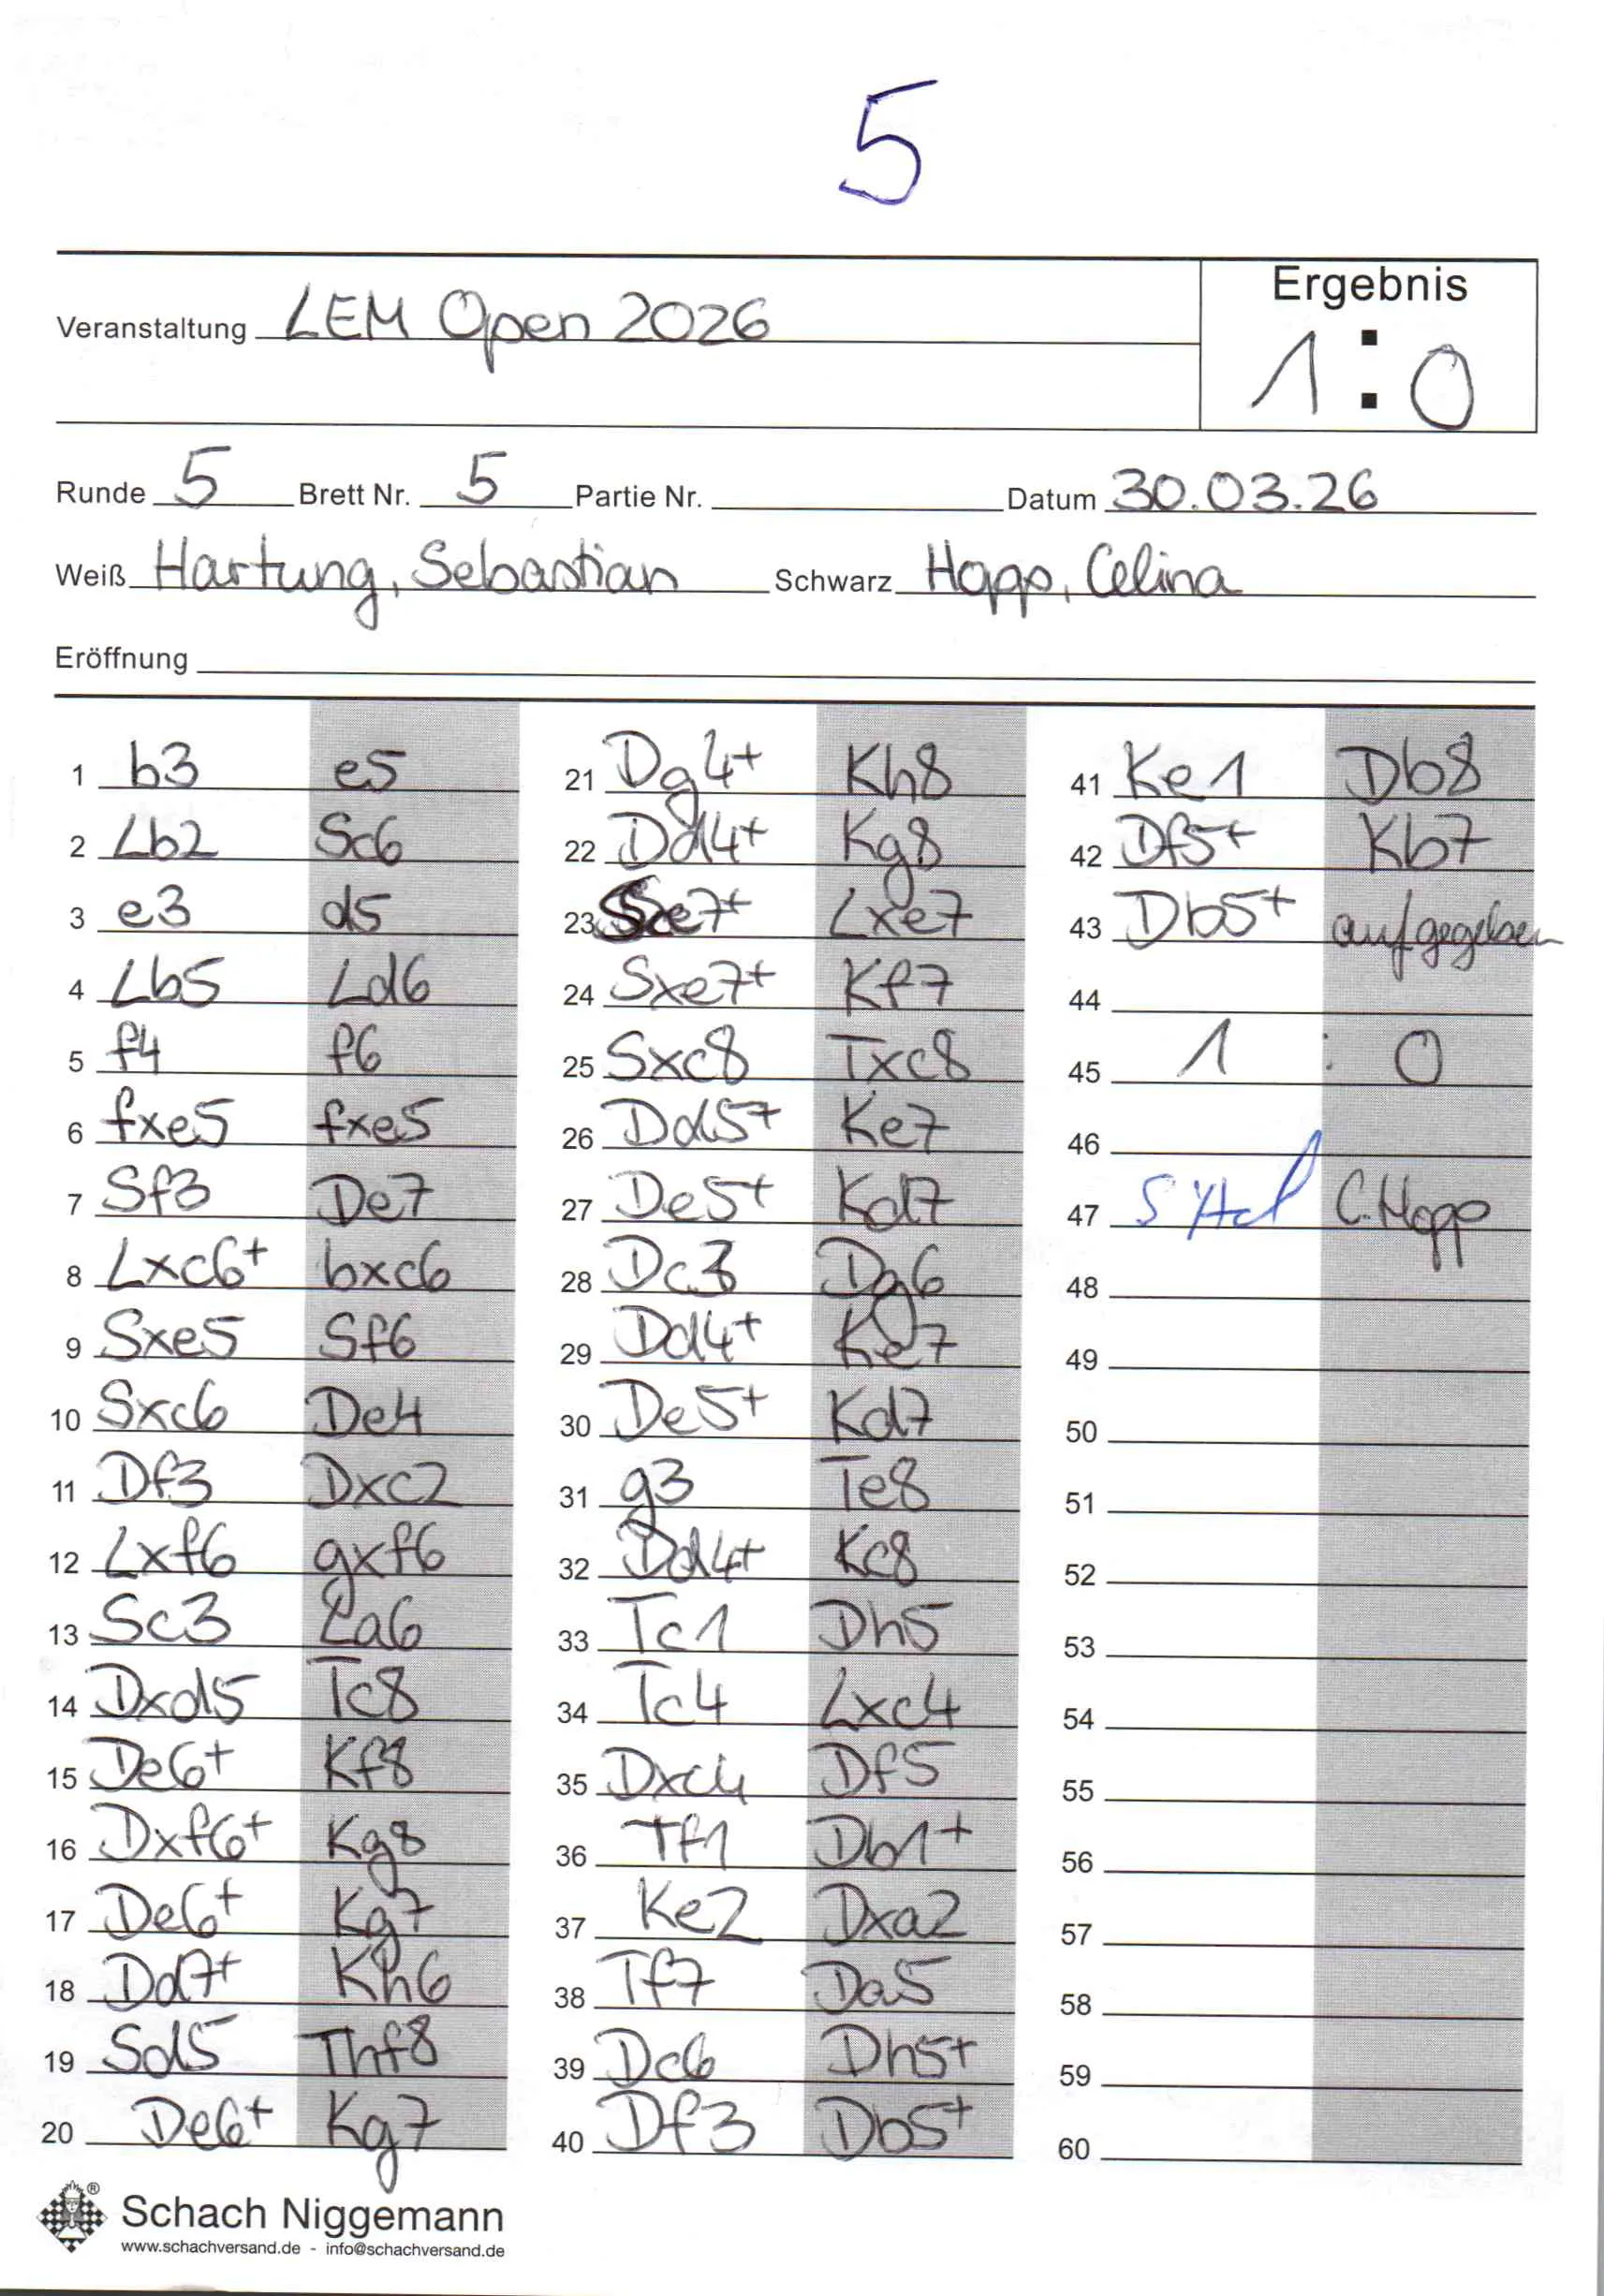 5
Ergebnis
Veranstaltung LEM Open 2026
1 : 0
Runde 5 Brett Nr. 5 Partie Nr. Datum 30.03.26
Weiß Hartung, Sebastian Schwarz Hopp, Celina
Eröffnung
1 b3 e5
2 Lb2 Sc6
3 e3 d5
4 Lb5 Ld6
5 f4 f6
6 fxe5 fxe5
7 Sf3 De7
8 Lxc6+ bxc6
9 Sxe5 Sf6
10 Sxc6 De4
11 Df3 Dxc2
12 Lxf6 gxf6
13 Sc3 La6
14 Dxd5 Tc8
15 De6+ Kf8
16 Dxf6+ Kg8
17 De6+ Kg7
18 Dd7+ Kh6
19 Sd5 Thf8
20 De6+ Kg7
21 Dg4+ Kh8
22 Dd4+ Kg8
23 Sce7+ Lxe7
24 Sxe7+ Kf7
25 Sxc8 Txc8
26 Dd5+ Ke7
27 De5+ Kd7
28 Dc3 Dg6
29 Dd4+ Ke7
30 De5+ Kd7
31 g3 Te8
32 Dd4+ Kc8
33 Tc1 Dh5
34 Tc4 Lxc4
35 Dxc4 Df5
36 Tf1 Db1+
37 Ke2 Dxa2
38 Tf7 Da5
39 Dc6 Dh5+
40 Df3 Db5+
41 Ke1 Db8
42 Df5+ Kb7
43 Db5+ aufgegeben
44
45 1 : 0
46
47 C. Hopp
48
49
50
51
52
53
54
55
56
57
58
59
60
Schach Niggemann
www.schachversand.de - info@schachversand.de